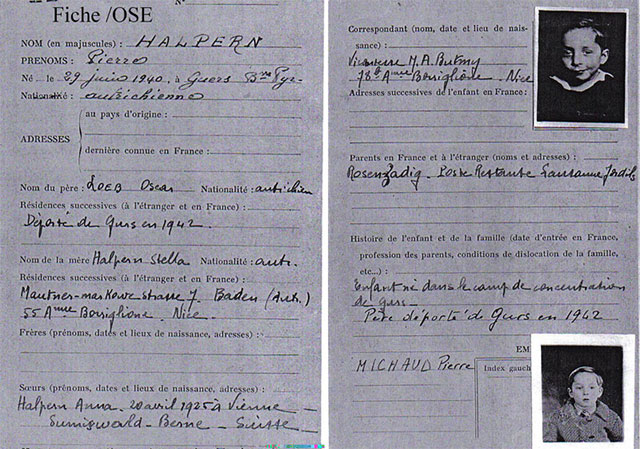 Fiche /OSE
NOM (en majuscules) : HALPERN
PRENOMS : Pierre
Né le 29 juin 1940, à Guers Bses Pyr.
Nationalité : autrichienne
au pays d'origine :
ADRESSES
dernière connue en France :
Nom du père : LOEB Oscar Nationalité : autrichien
Résidences successives (à l'étranger et en France) :
Déporté de Gurs en 1942
Nom de la mère Halpern Stella Nationalité : autr.
Résidences successives (à l'étranger et en France) :
strasse 7. Baden (Autr.)
55 Borriglione. Nice.
Frères (prénoms, dates et lieux de naissance, adresses) :
Sœurs (prénoms, dates et lieux de naissance, adresses) :
Halpern Anna. 20 avril 1925 à Vienne –
Sumiswald – Berne – Suisse
Correspondant (nom, date et lieu de nais-
sance) :
M. A.
Borriglione Nice
Adresses successives de l'enfant en France :
Parents en France et à l'étranger (noms et adresses) :
Rosenzadig. Poste Restante Lausanne
Histoire de l'enfant et de la famille (date d'entrée en France,
profession des parents, conditions de dislocation de la famille,
etc...) :
Enfant né dans le camp de concentration
de gurs –
Père déporté de Gurs en 1942
EM
MICHAUD Pierre
Index gauch